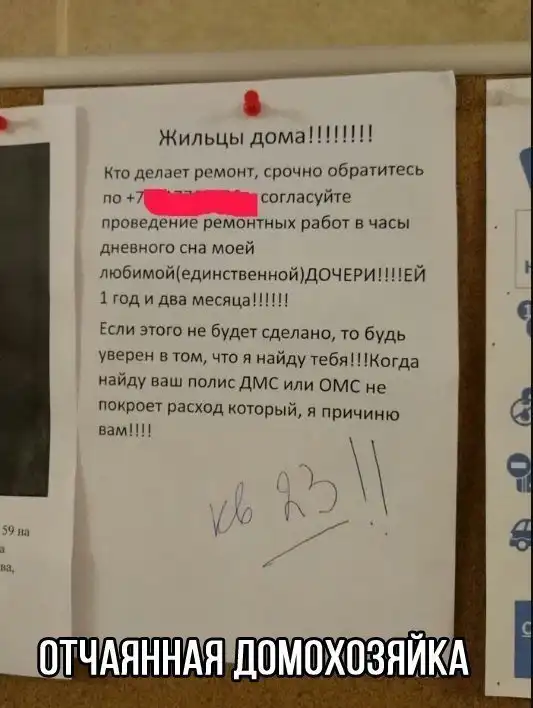 Жильцы дома!!!!!!!!
Кто делает ремонт, срочно обратитесь
по +7 согласуйте
проведение ремонтных работ в часы
дневного сна моей
любимой(единственной)ДОЧЕРИ!!!!ЕЙ
1 год и два месяца!!!!!!
Если этого не будет сделано, то будь
уверен в том, что я найду тебя!!!Когда
найду ваш полис ДМС или ОМС не
покроет расход который, я причиню
вам!!!!
кв 23!!
59 на
ва,
ОТЧАЯННАЯ ДОМОХОЗЯЙКА